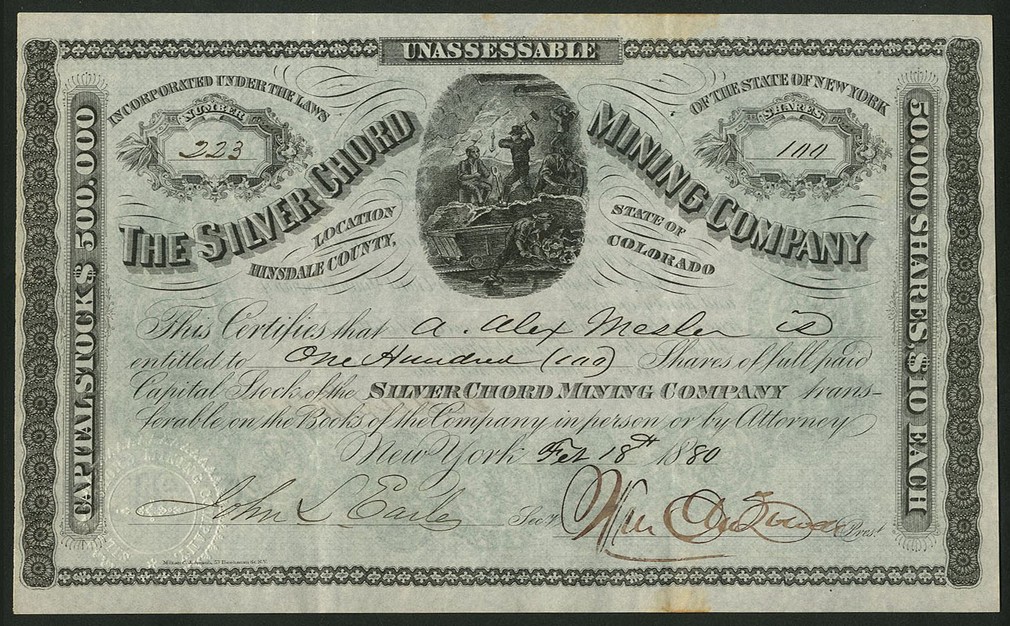 UNASSESSABLE
INCORPORATED UNDER THE LAWS
OF THE STATE OF NEW YORK
NUMBER
223
SHARES
100
THE SILVER CHORD
MINING COMPANY
LOCATION
HINSDALE COUNTY,
STATE OF
COLORADO
CAPITAL STOCK $ 500.000
50.000 SHARES, $10 EACH
This Certifies that A. Alex Mesler is
entitled to One Hundred (100) Shares of full paid
Capital Stock of the SILVER CHORD MINING COMPANY trans-
ferable on the Books of the Company in person or by Attorney
New York Feb 18th 1880
John L Earle Secy.
Wm Prest.